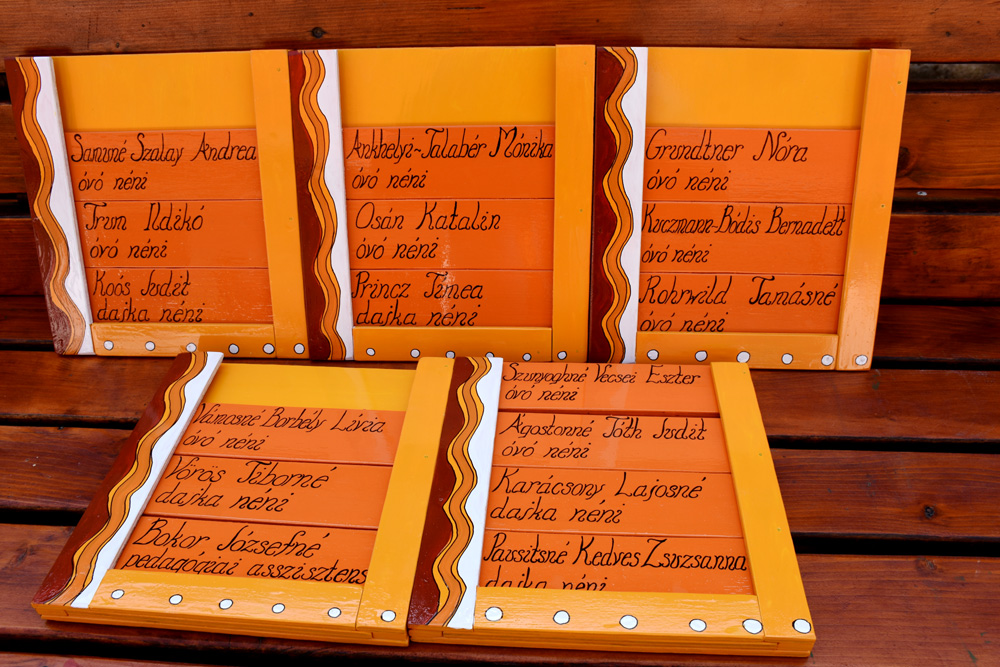 Samuné Szalay Andrea
óvó néni
Trum Ildikó
óvó néni
Koós Judit
dajka néni
Ankhelyi-Talabér Mónika
óvó néni
Osán Katalin
óvó néni
Princz Tímea
dajka néni
Grundtner Nóra
óvó néni
Kuczmann-Bódis Bernadett
óvó néni
Rohrwild Tamásné
óvó néni
Vámosné Borbély Lívia
óvó néni
Vörös Tiborné
dajka néni
Bokor Józsefné
pedagógiai asszisztens
Szunyoghné Vecsei Eszter
óvó néni
Ágostonné Tóth Judit
óvó néni
Karácsony Lajosné
dajka néni
Paisitsné Kedves Zsuzsanna
dajka néni